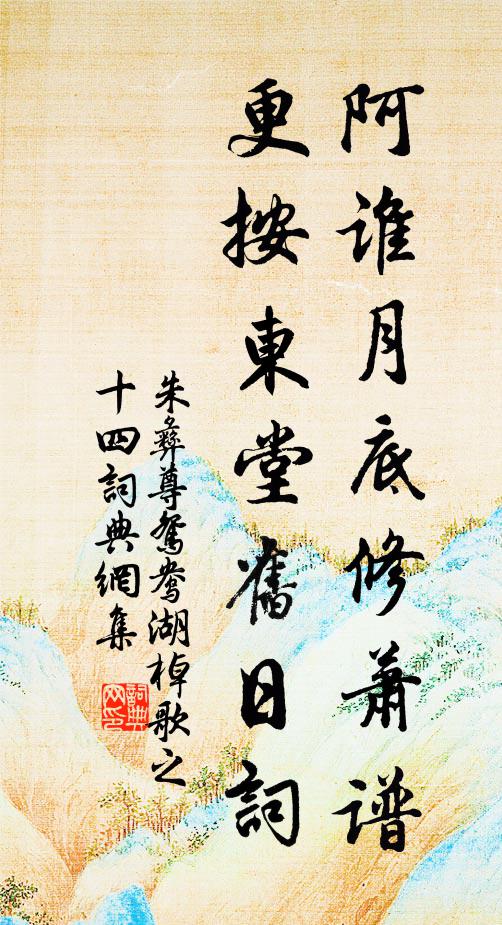 阿谁月底修萧谱
更按東堂舊日詞
朱彝尊鴛鴦湖棹歌之
十四詞典網集
詞典
网印